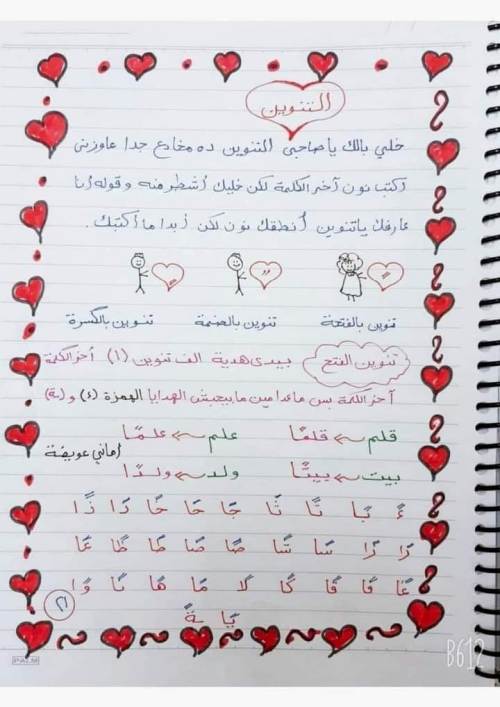 التنوين
خلي بالك يا صاحبي التنوين ده مخادع جدا عاوزني
اكتب نون آخر الكلمة لكن خليك أشطر منه وقوله أنا
عارفك يا تنوين أنطقك نون لكن أبدا ما أكتبك.
تنوين بالفتحة تنوين بالضمة تنوين بالكسرة
تنوين الفتح بيدي هدية الف تنوين (ا) آخر الكلمة
آخر الكلمة بس ماعدا مين ما بيجبش الهدايا الهمزة (ء) و(ة)
قلم ← قلمًا علم ← علمًا
أماني عويضة
بيت ← بيتًا ولد ← ولدًا
ءً بًا تًا ثًا جًا حًا خًا دًا ذًا
رًا زًا سًا شًا صًا ضًا طًا ظًا عًا
غًا فًا قًا كًا لًا مًا هًا نًا وًا
يًا ةً
٢١
PALM
B612